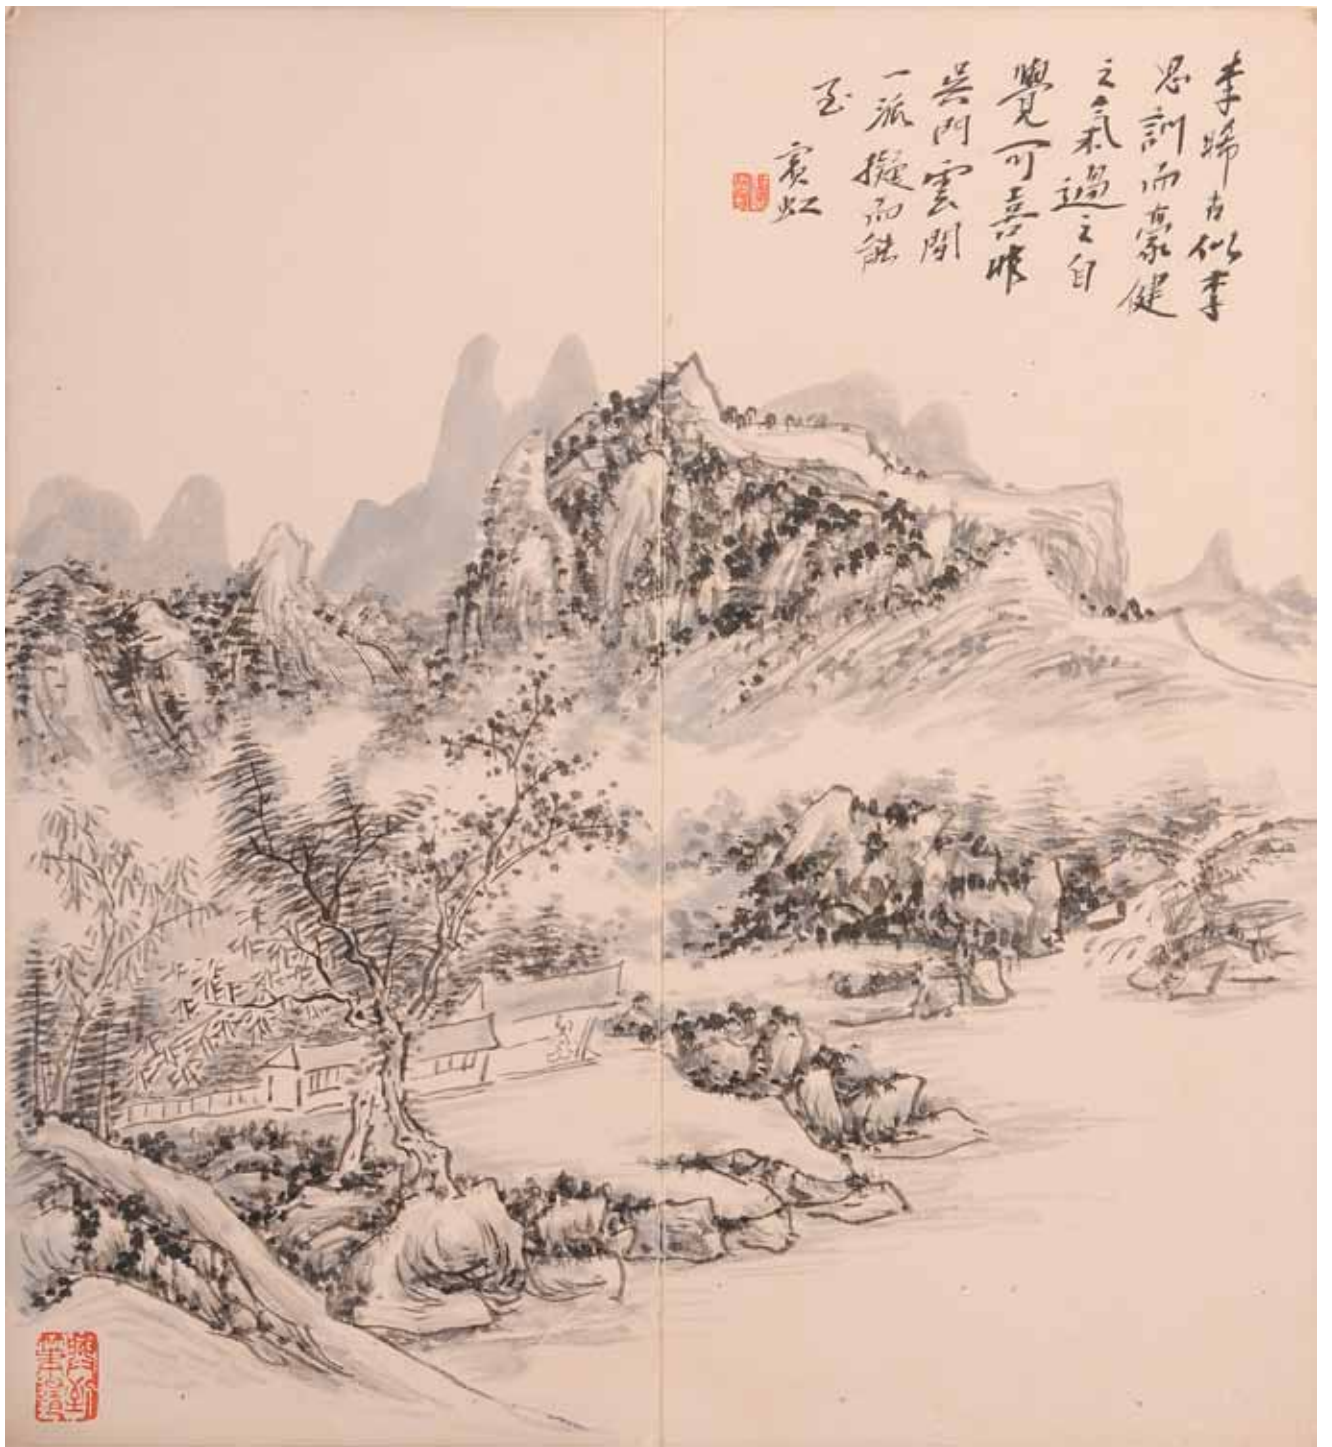 李晞古似李
思訓而豪健
之氣過之自
覺可喜非
吳門雲間
一派擬而能
至
賓虹